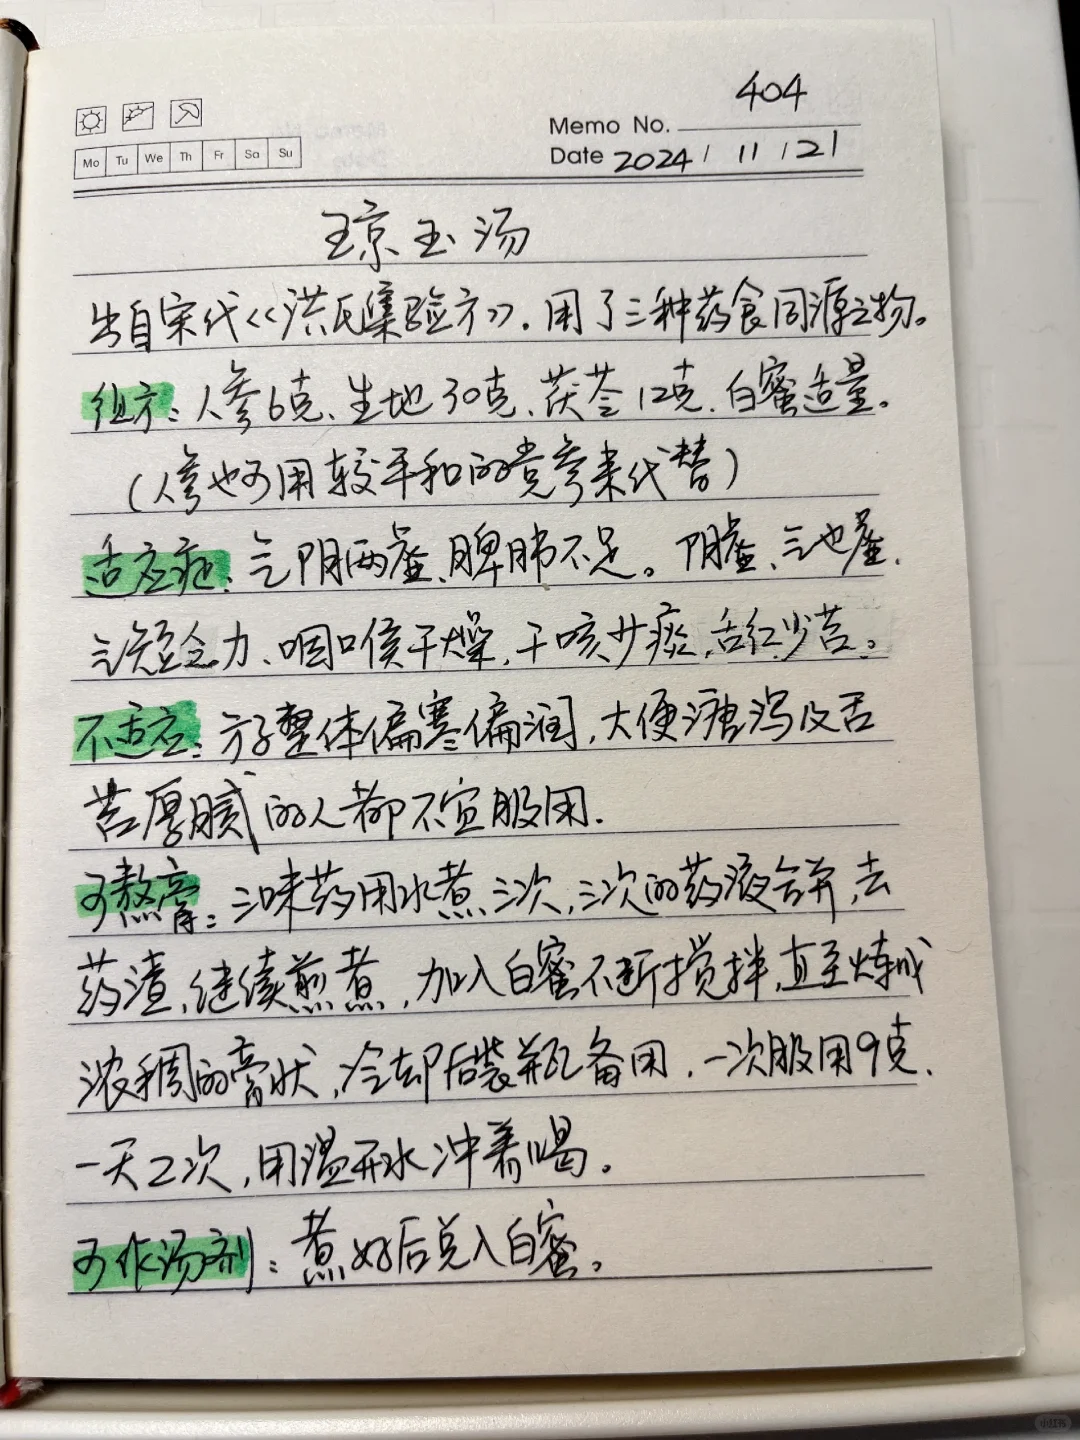 404
Memo No.
Date 2024 / 11 / 21
Mo Tu We Th Fr Sa Su
琼玉汤
出自宋代《洪氏集验方》.用了三种药食同源之物。
组方:人参6克、生地30克、茯苓12克、白蜜适量。
(人参也可用较平和的党参来代替)
适应症:气阴两虚、脾肺不足。阴虚、气也虚.
气短乏力、咽口喉干燥,干咳少痰,舌红少苔。
不适应:方子整体偏寒偏润,大便溏泻及舌
苔厚腻的人都不宜服用.
可熬膏:三味药用水煮三次,三次的药液合并,去
药渣,继续煎煮,加入白蜜不断搅拌,直至炼成
浓稠的膏状,冷却后装瓶备用.一次服用9克.
一天2次,用温开水冲着喝。
可作汤剂:煮好后兑入白蜜。
小红书